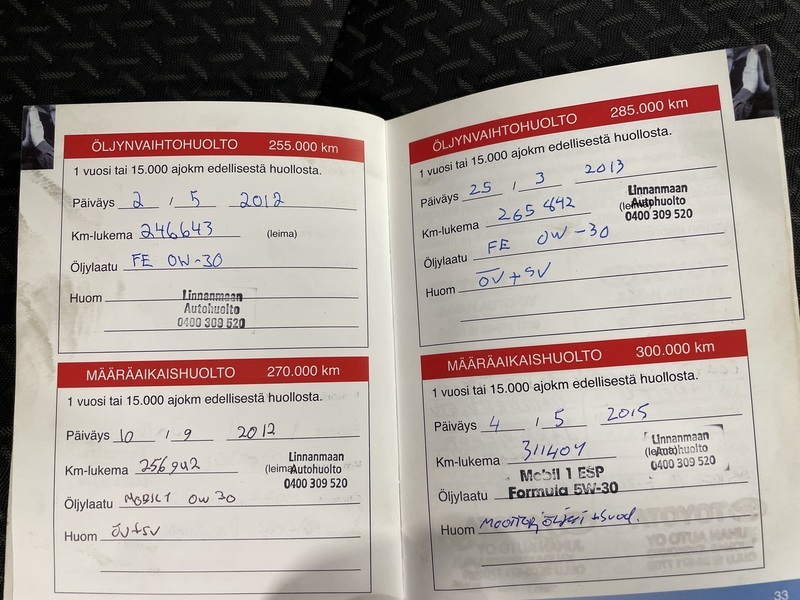 ÖLJYNVAIHTOHUOLTO 255.000 km
1 vuosi tai 15.000 ajokm edellisestä huollosta.
Päiväys 2 / 5 2012
Km-lukema 246643 (leima)
Öljylaatu FE 0W-30
Huom
Linnanmaan
Autohuolto
0400 309 520
MÄÄRÄAIKAISHUOLTO 270.000 km
1 vuosi tai 15.000 ajokm edellisestä huollosta.
Päiväys 10 / 9 2012
Km-lukema 256942 (leima)
Linnanmaan
Autohuolto
0400 309 520
Öljylaatu MOBIL 1 0W30
Huom ÖV+SV
ÖLJYNVAIHTOHUOLTO 285.000 km
1 vuosi tai 15.000 ajokm edellisestä huollosta.
Päiväys 25 / 3 2013
Km-lukema 265 842 (leima)
Linnanmaan
Autohuolto
0400 309 520
Öljylaatu FE 0W-30
Huom ÖV+SV
MÄÄRÄAIKAISHUOLTO 300.000 km
1 vuosi tai 15.000 ajokm edellisestä huollosta.
Päiväys 4 / 5 2015
Km-lukema 311401 (leima)
Linnanmaan
Autohuolto
0400 309 520
Öljylaatu Mobil 1 ESP
Formula 5W-30
Huom moottoriöljeri +Suod.
33